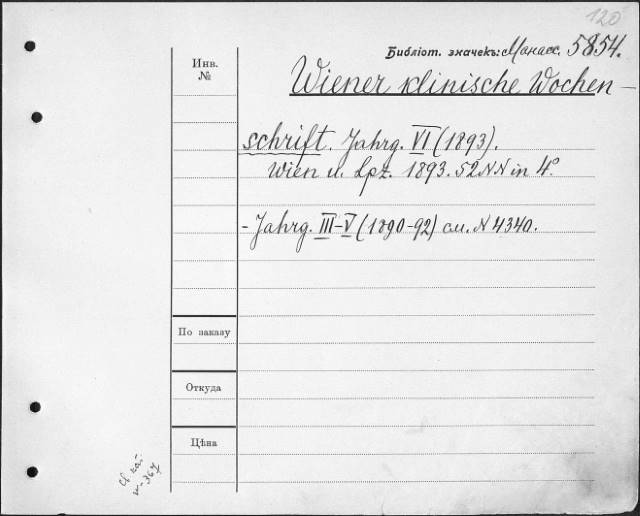 120
Библіот. значекъ: Манасс. 5854.
Инв.
№
Wiener klinische Wochen-
schrift. Jahrg. VI (1893).
Wien u. Lpz. 1893. 52 NN in 4°.
- Jahrg. III-V (1890-92) см. N 4340.
По заказу
Откуда
Цѣна